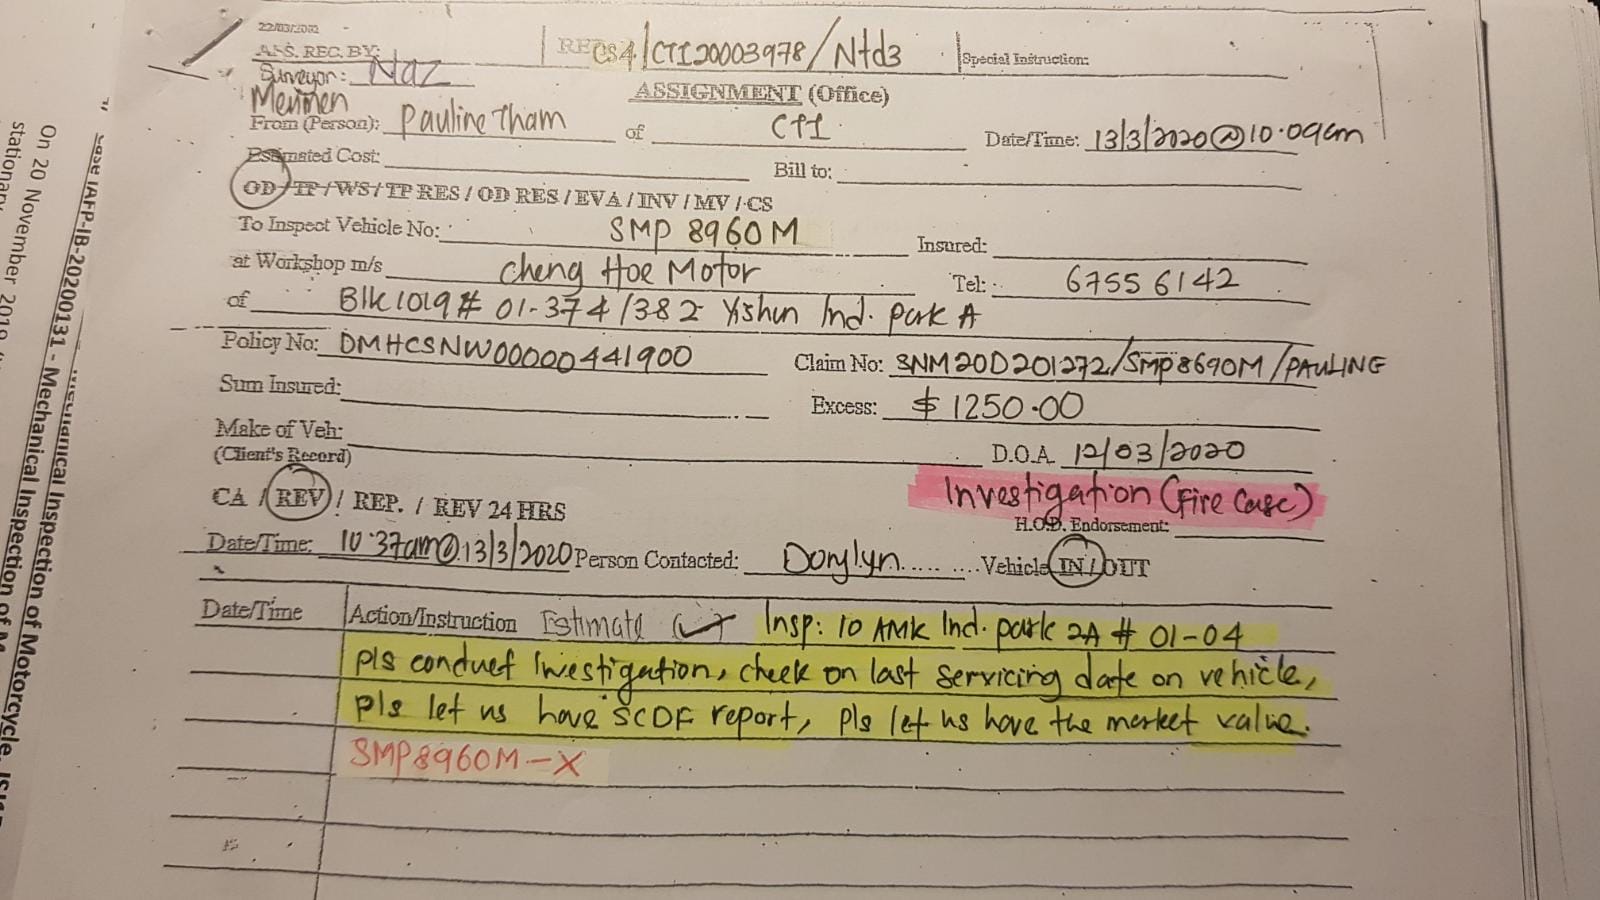 22/03/2002
ASS. REC. BY:
REF: CS4/CTI20003978/Ntd3
Special Instruction:
Surveyor: Naz
ASSIGNMENT (Office)
Merimen
From (Person): Pauline Tham of CTI Date/Time: 13/3/2020@10.09am
Estimated Cost: Bill to:
OD / TP / WS / TP RES / OD RES / EVA / INV / MV / CS
To Inspect Vehicle No: SMP 8960M Insured:
at Workshop m/s Cheng Hoe Motor Tel: 6755 6142
of Blk 1019 # 01-374/382 Yishun Ind. Park A
Policy No: DMHCSNW00000441900 Claim No: SNM20D201272/SMP8690M/PAULING
Sum Insured: Excess: $1250.00
Make of Veh: D.O.A. 12/03/2020
(Client's Record)
Investigation (Fire Case)
CA / REV / REP. / REV 24 HRS
H.O.D. Endorsement:
Date/Time: 10.37am@13/3/2020 Person Contacted: Dorylyn Vehicle IN / OUT
Date/Time Action/Instruction Estimate (✓) Insp: 10 AMK Ind. park 2A # 01-04
pls conduct Investigation, check on last servicing date on vehicle,
pls let us have SCDF report, pls let us have the market value.
SMP8960M-X
Case IAFP-IB-20200131 - Mechanical Inspection of Motorcycle
On 20 November 2019
stationary